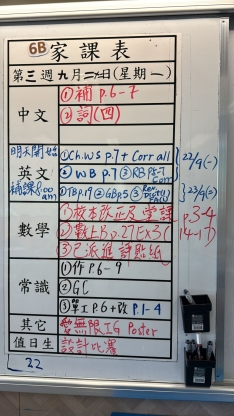 6B 家課表
第三週九月二十日(星期一)
中文 ①補 p.6-7
②詞(四)
明天開始 ①Ch.WS p.7 + Corr all 22/9(-)
英文 ②WB p.7 ③RB p5-7 Corr
補課8:00am ①TB p.19 ②GB p.5 ③Rev 23/9(=)
①校本改正及堂課 p.3-4
數學 ②數上B p.27 Ex3(14-17)
③已派進評貼紙
①作 p.6-9
常識 ②GC
③單工 p.6 + 改 p.1-4
其它 無限IG Poster
值日生 設計比賽
22